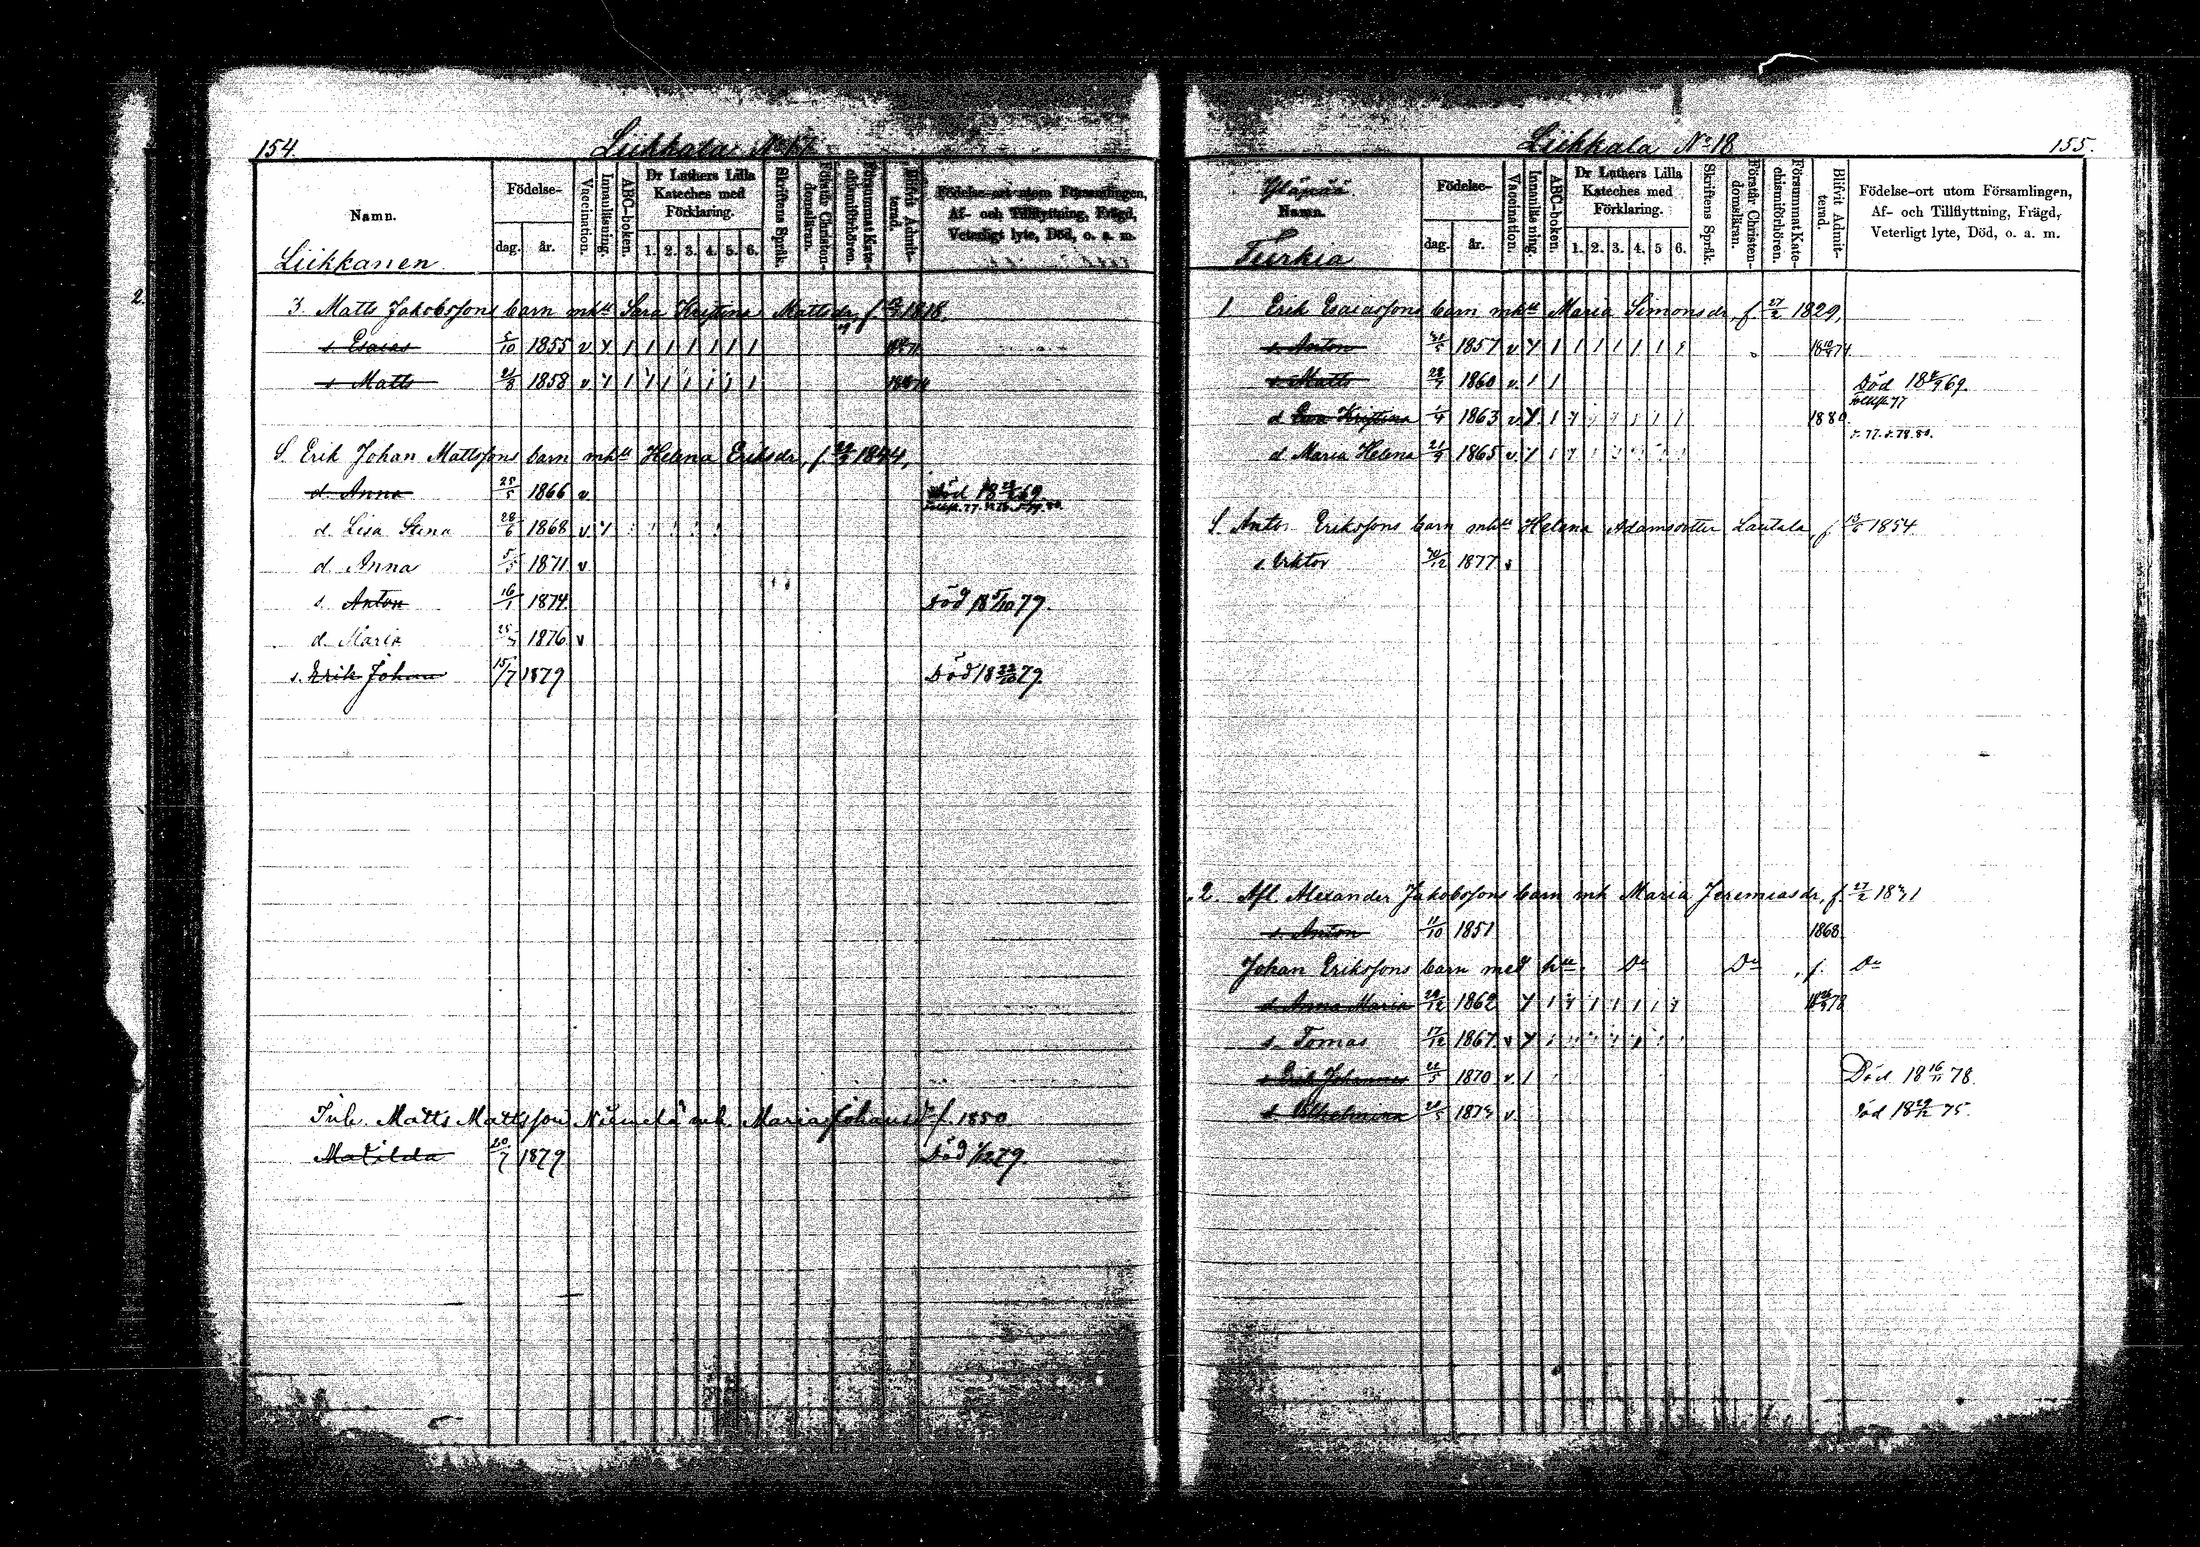 154.
Liikkala No 17
Namn.
Födelse-
dag. år.
Vaccination.
Innanläsning.
ABC-boken.
Dr Luthers Lilla Kateches med Förklaring.
1. 2. 3. 4. 5. 6.
Skriftens Språk.
Förstår Christendomsläran.
Försummat Katechismiförhören.
Blifvit Admitterad.
Födelse-ort utom Församlingen, Af- och Tillflyttning, Frägd, Veterligt lyte, Död, o. a. m.
Liikkanen
3. Matts Jakobssons barn mhu Sara Kristina Mattsdr, f. 1818,
s. Esaias 5/10 1855 v
s. Matts 21/8 1858 v
S. Erik Johan Mattssons barn mhu Helena Eriksdr, f. 1844,
d. Anna 25/5 1866 v Död 69
d. Lisa Stina 28/6 1868 v
d. Anna 5/5 1871 v
s. Anton 16/1 1874 Död 18 /10 79.
d. Maria 1876 v
s. Erik Johan 15/7 1879 Död 18 23/10 79.
Inh. Matts Mattsson Niemelä mh. Maria Johansdr f. 1850
Matilda 20/7 1879 Död 79.
Liikkala No 18
155.
Yläpää
Namn.
Födelse-
dag. år.
Vaccination.
Innanläsning.
ABC-boken.
Dr Luthers Lilla Kateches med Förklaring.
1. 2. 3. 4. 5 6.
Skriftens Språk.
Förstår Christendomsläran.
Försummat Katechismiförhören.
Blifvit Admitterad.
Födelse-ort utom Församlingen, Af- och Tillflyttning, Frägd, Veterligt lyte, Död, o. a. m.
Turkia
1 Erik Esaiassons barn mhu Maria Simonsdr, f. 27/2 1829,
s. Anton 1857 v 74
s. Matts 28/7 1860 v. Död 69.
d Eva Kristina 1863 v 1880.
d Maria Helena 21/9 1865 v.
S. Anton Erikssons barn mhu Helena Adamsdotter Lautala, f 1854
s. Viktor /12 1877 v
2. Afl. Alexander Jakobssons barn mh Maria Jeremiasdr, f. 27/2 1831
s. Anton 11/10 1851 1868.
Johan Erikssons barn med hu. Do Do, f. Do
d. Anna Maria 29/12 1862 78
s. Tomas 17/12 1867 v
s Erik Johannes 22/5 1870 v. Död 18 16/11 78.
d. Vilhelmina 20/5 1873 v. Död 18 29/12 75.